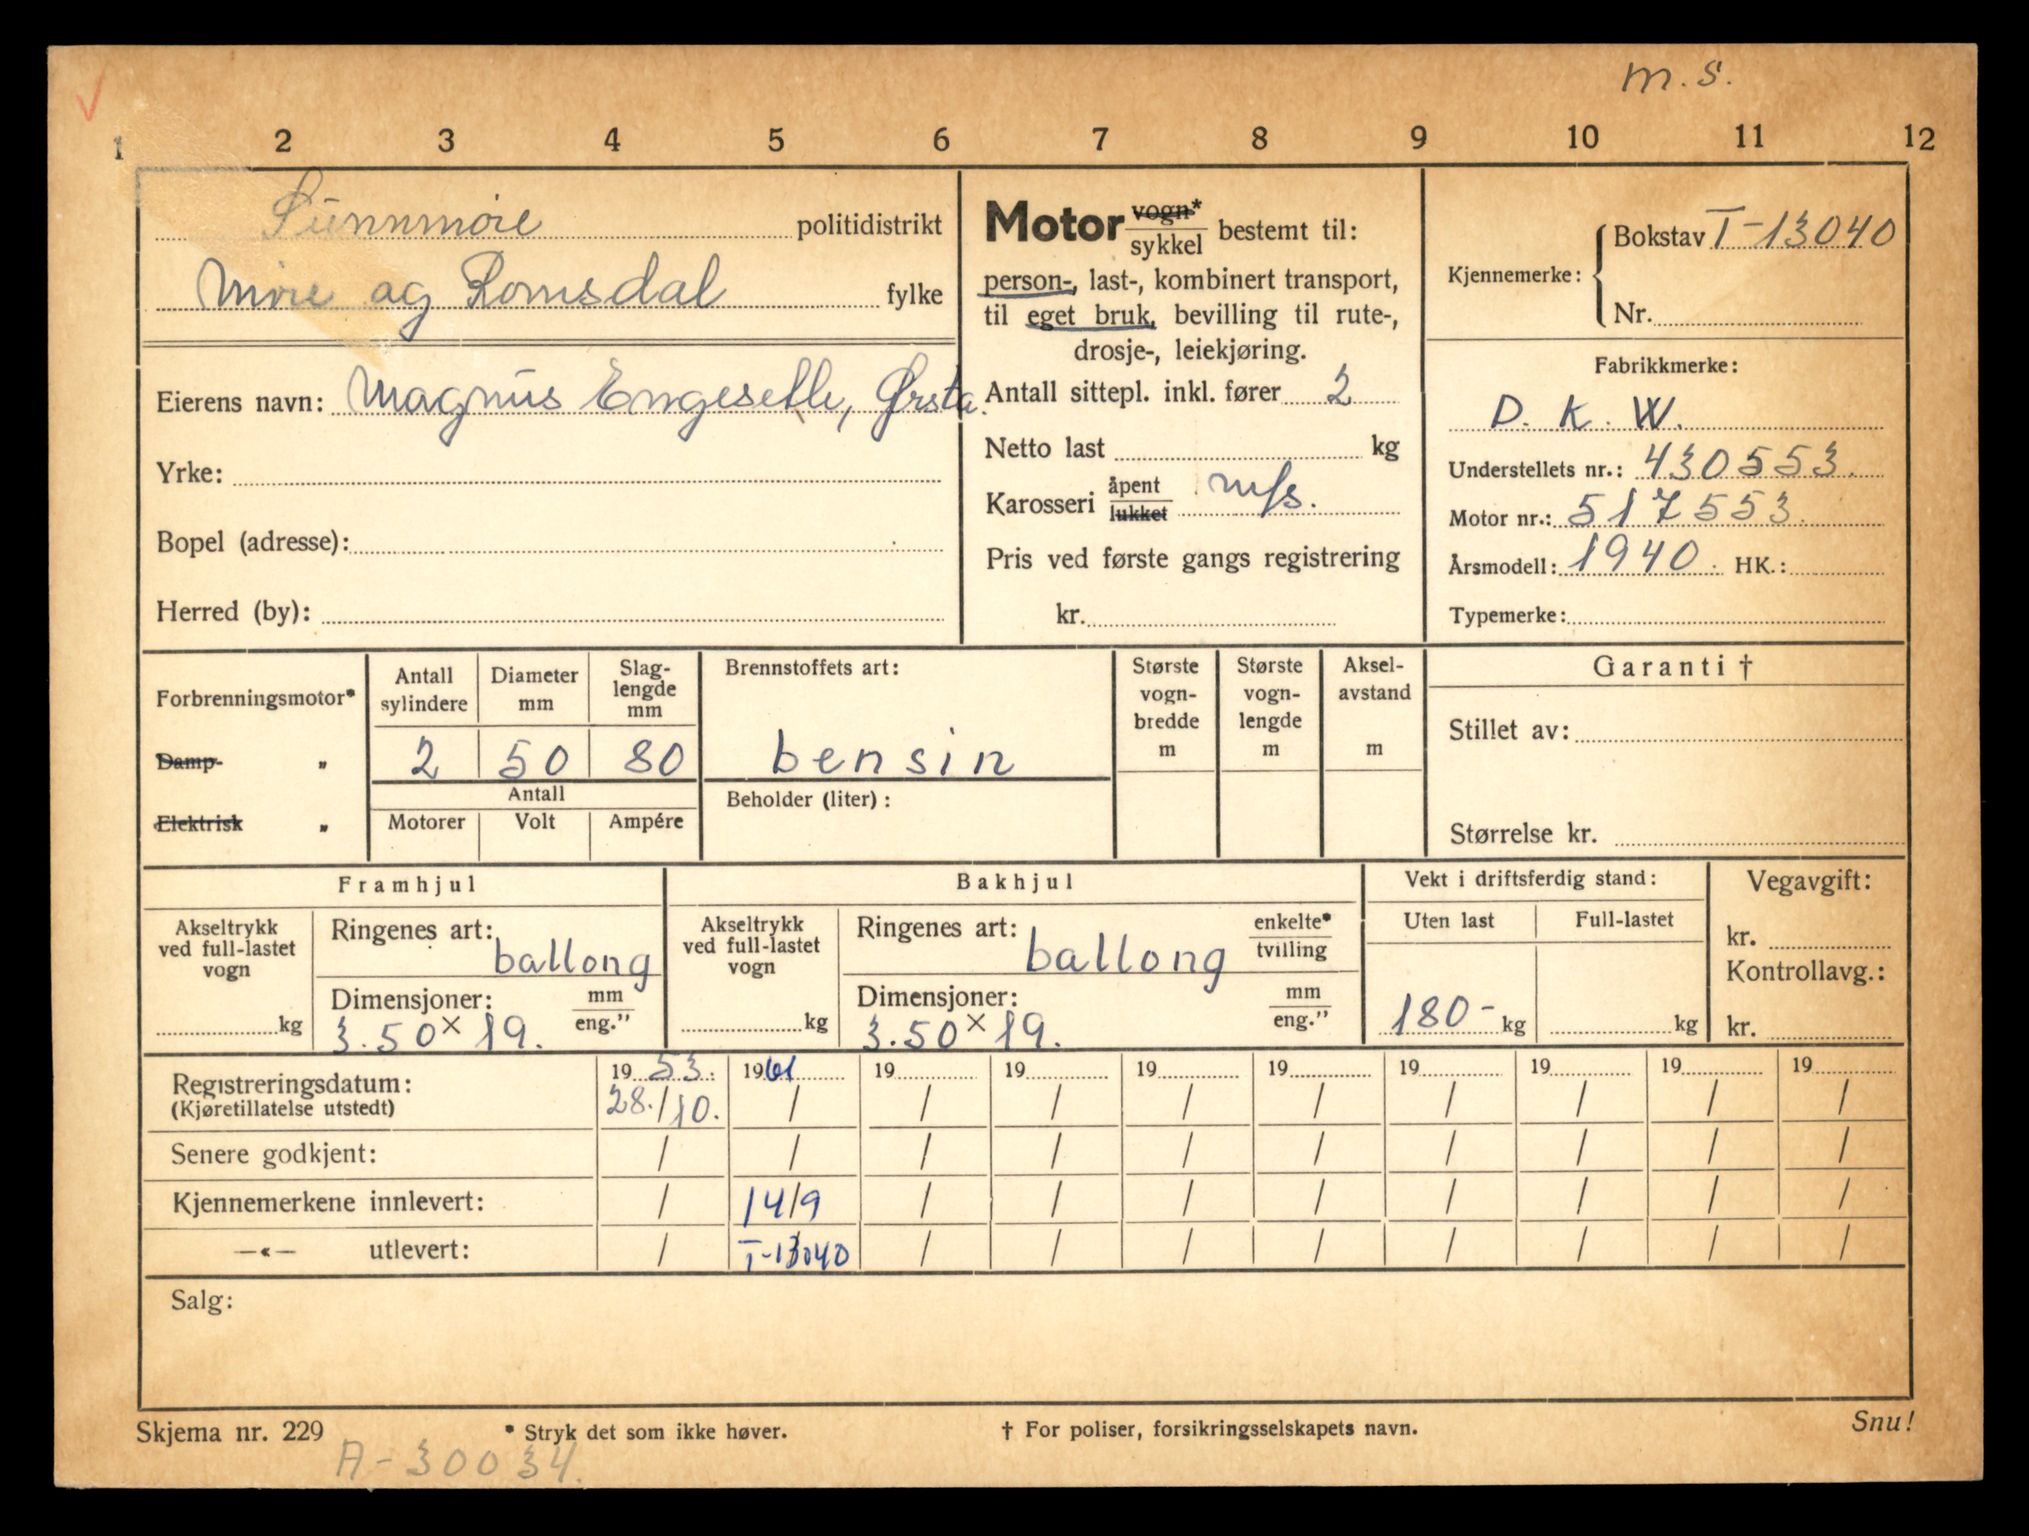 m.s.
1 2 3 4 5 6 7 8 9 10 11 12
Sunnmøre politidistrikt
Møre og Romsdal fylke
Eierens navn: Magnus Engesetle, Ørsta.
Yrke:
Bopel (adresse):
Herred (by):
Motor vogn* / sykkel bestemt til:
person-, last-, kombinert transport,
til eget bruk, bevilling til rute-,
drosje-, leiekjøring.
Antall sittepl. inkl. fører 2
Netto last kg
Karosseri åpent / lukket m/s.
Pris ved første gangs registrering
kr.
Kjennemerke: Bokstav T-13040
Nr.
Fabrikkmerke:
D. K. W.
Understellets nr.: 430553.
Motor nr.: 517553.
Årsmodell: 1940. HK.:
Typemerke:
Forbrenningsmotor*
Damp- „
Elektrisk „
Antall sylindere Diameter mm Slag-lengde mm
2 50 80
Antall
Motorer Volt Ampére
Brennstoffets art:
bensin
Beholder (liter):
Største vogn-bredde m
Største vogn-lengde m
Aksel-avstand m
Garanti †
Stillet av:
Størrelse kr.
Framhjul
Akseltrykk ved full-lastet vogn
kg
Ringenes art: ballong
Dimensjoner: mm / eng."
3.50 x 19.
Bakhjul
Akseltrykk ved full-lastet vogn
kg
Ringenes art: ballong enkelte* / tvilling
Dimensjoner: mm / eng."
3.50 x 19.
Vekt i driftsferdig stand:
Uten last Full-lastet
180- kg kg
Vegavgift:
kr.
Kontrollavg.:
kr.
19 53. 1961 19 19 19 19 19 19 19 19
Registreringsdatum: 28./10. / / / / / / / / /
(Kjøretillatelse utstedt)
Senere godkjent: / / / / / / / / / /
Kjennemerkene innlevert: / 14/9 / / / / / / / /
—«— utlevert: / T-13040 / / / / / / / /
Salg:
Skjema nr. 229 * Stryk det som ikke høver. † For poliser, forsikringsselskapets navn. Snu!
A-30034.